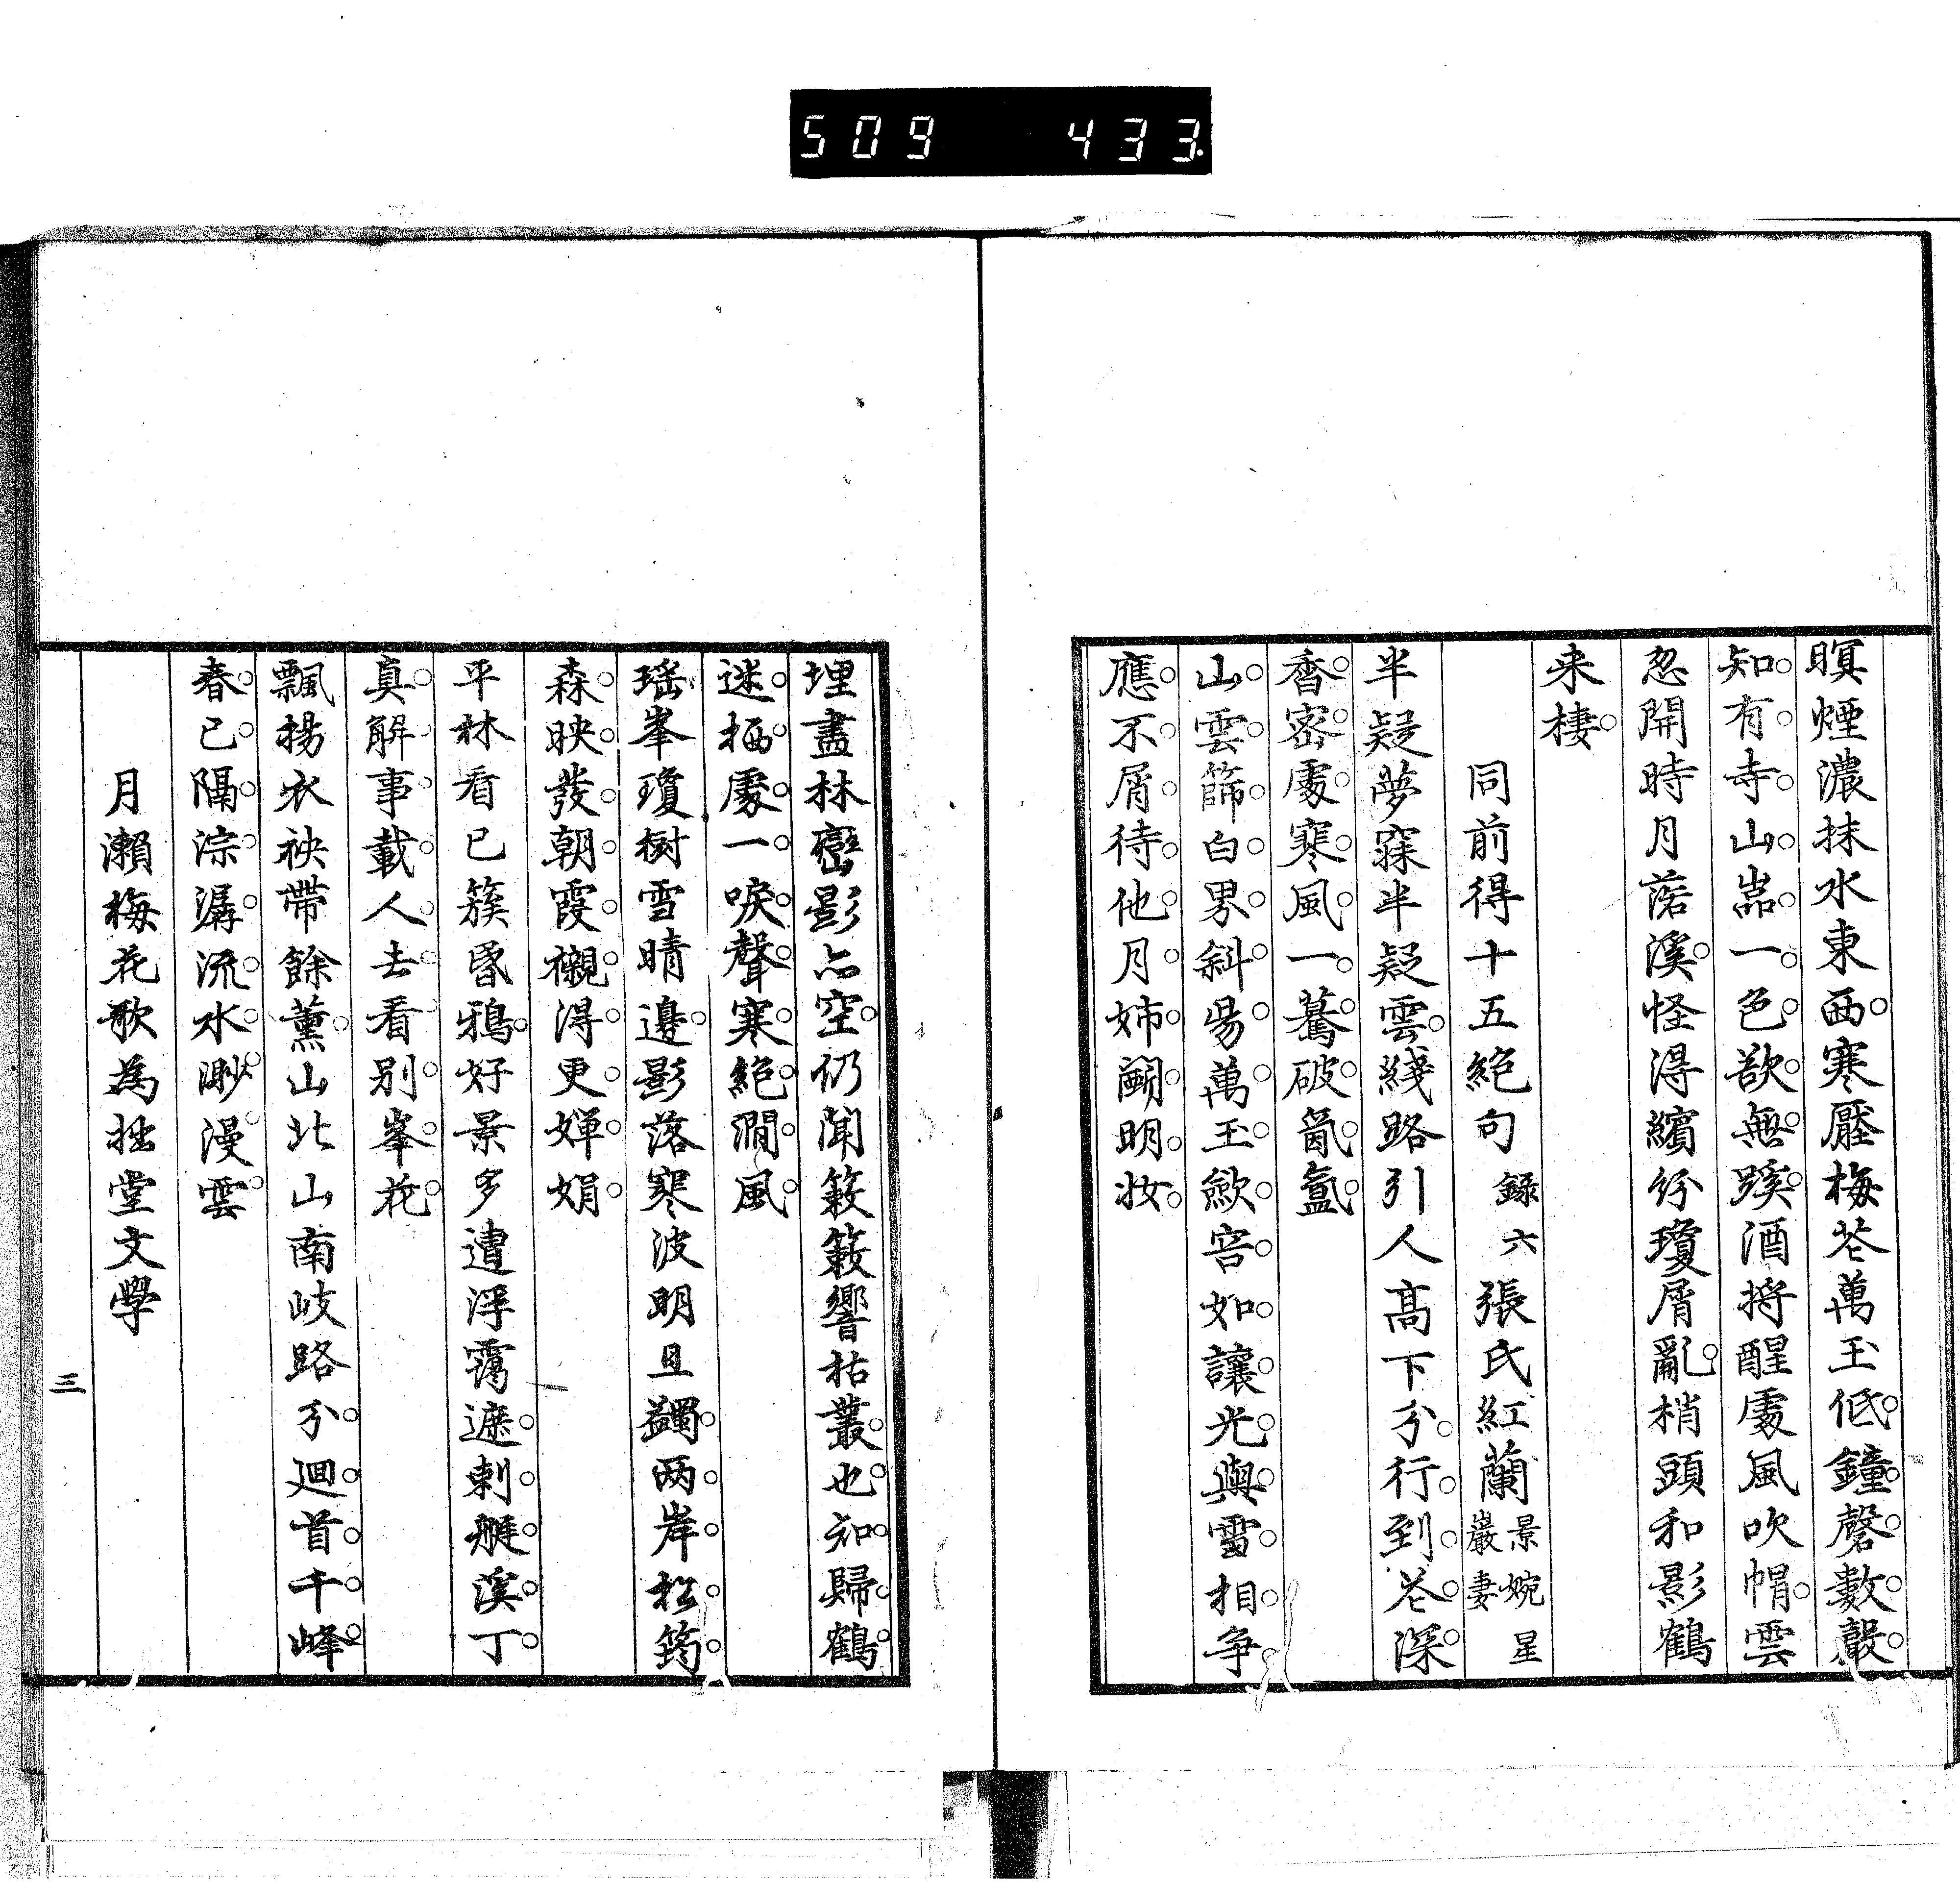 509 433
暝煙濃抹水東西寒壓梅花萬玉低鐘磬數聲
知有寺山嵓一色欲無蹊酒將醒處風吹帽雲
忽開時月落溪怪得繽紛瓊屑亂梢頭和影鶴
来棲
同前得十五絶句 錄六 張氏紅蘭 景婉星巖妻
半疑夢寐半疑雲綫路引人高下分行到花深
香密處寒風一驀破氤氳
山雲篩白界斜陽萬玉歛容如讓光與雪相爭
應不屑待他月姉鬭明妝
埋盡林巒影亦空仍聞簌簌響枯叢也知歸鶴
迷栖處一唳聲寒絶澗風
瑶峯瓊樹雪晴邊影落寒波明且蠲两岸松筠
森映發朝霞襯得更嬋娟
平林看已簇昏鴉好景多遭浮靄遮剌艇溪丁
真解事載人去看别峯花
飄揚衣袂帶餘薰山北山南岐路分迴首千峰
春已隔淙潺流水渺漫雲
月瀨梅花歌為拙堂文學
三